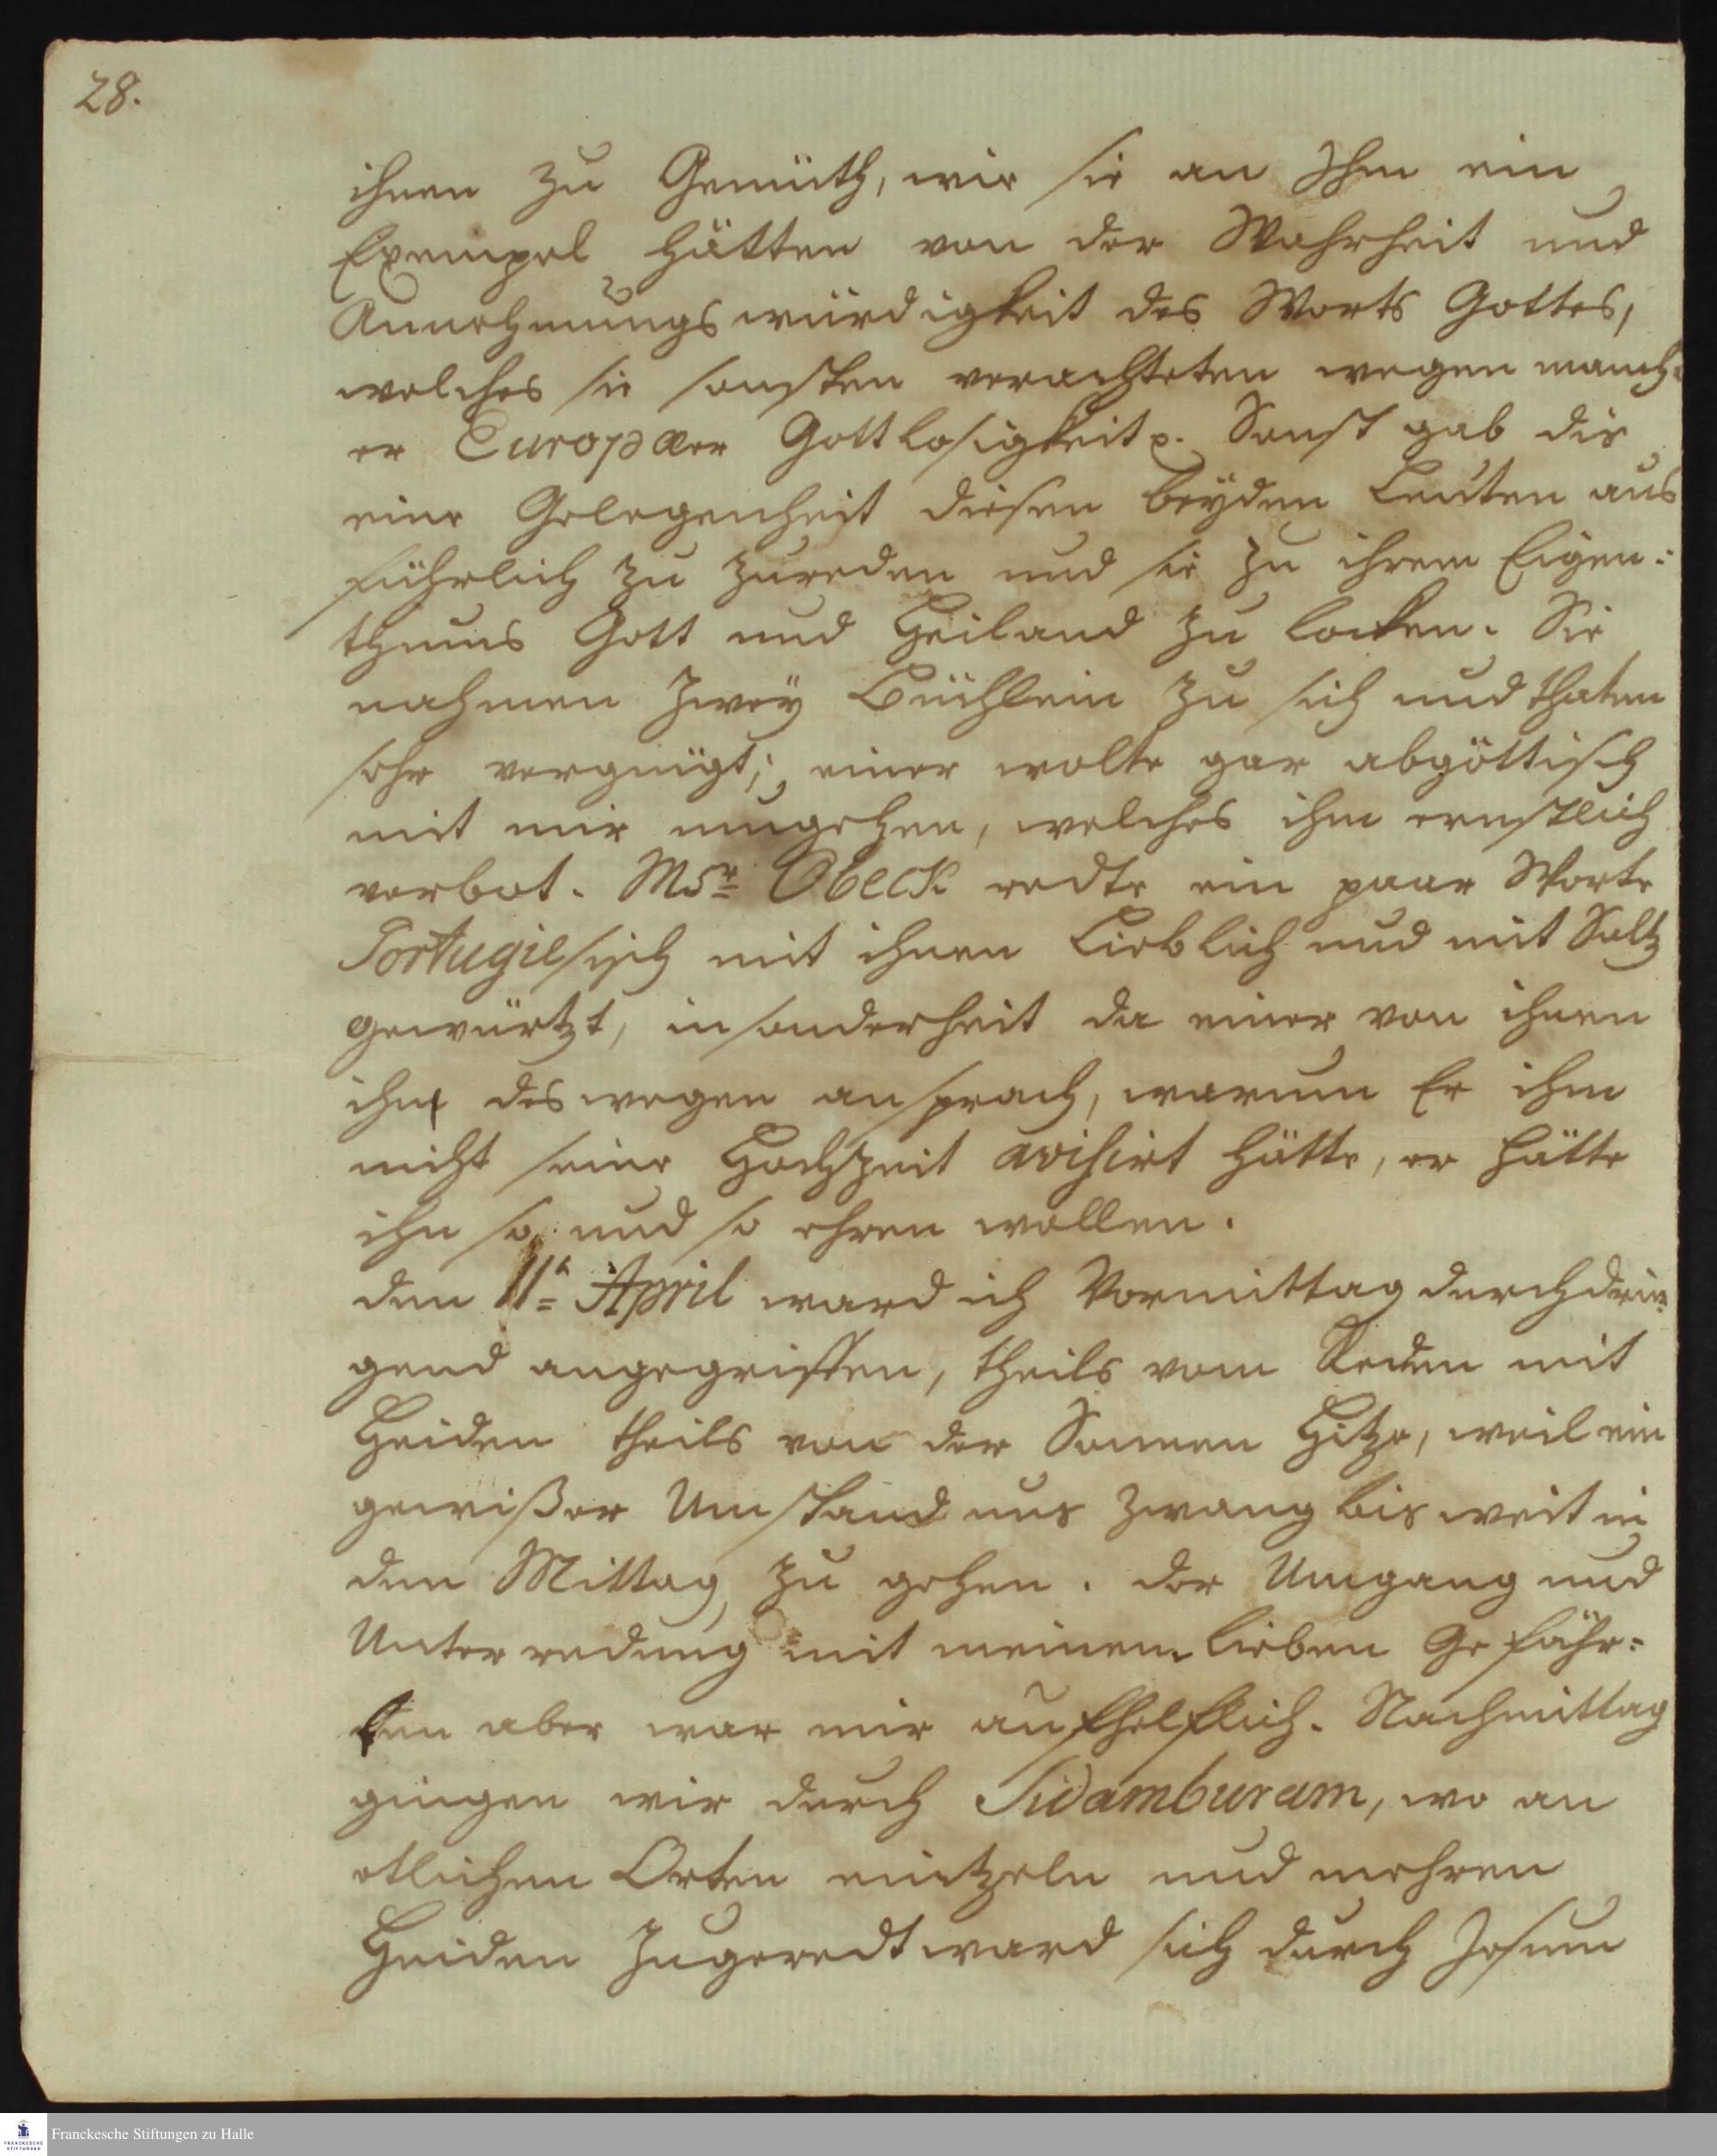 28.
ihnen zu Gemüth, wie sie an Ihm ein
Exempel hätten von der Wahrheit und
Annehmungswürdigkeit des Worts Gottes,
welches sie sonsten verachteten wegen manch-
er Europæer Gottlosigkeit p. Sonst gab dis
eine Gelegenheit diesen beyden Leuten aus
führlich zu zureden und sie zu ihrem Eigen-
thums Gott und Heiland zu locken. Sie
nahmen zwey Büchlein zu sich und thaten
sehr vergnügt; einer wolte gar abgöttisch
mit mir umgehen, welches ihm ernstlich
verbot. Msr. Obeck redte ein paar Worte
Portugiesisch mit ihnen Lieblich und mit Saltz
gewürtzt, insonderheit da einer von ihnen
ihn deswegen ansprach, warum Er ihm
nicht seine Hochzeit avisirt hätte, er hätte
ihn so und so ehren wollen.
den 11n April ward ich Vormittag durchdrin-
gend angegriffen, theils vom Reden mit
Heiden theils von der Sonnen Hitze, weil ein
gewißer Umstand uns zwang bis weit in
den Mittag zu gehen. der Umgang und
Unterredung mit meinem lieben Gefähr-
ten aber war mir aufhelflich. Nachmittag
gingen wir durch Sidamburam, wo an
etlichen Orten eintzeln und mehren
Heiden zugeredt ward sich durch Jesum
Franckesche Stiftungen zu Halle
FRANCKESCHE
STIFTUNGEN